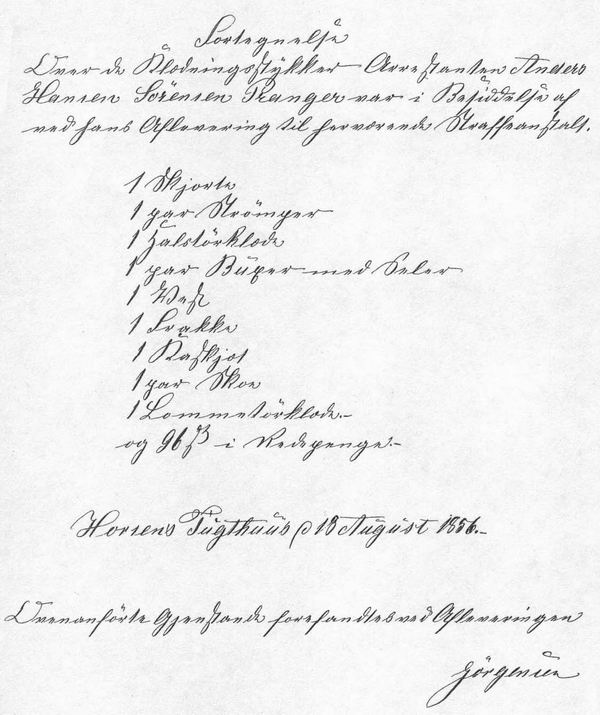 Fortegnelse
Over de Klædningsstykker Arrestanten Anders
Hansen Sörensen Pranger var i Besiddelse af
ved hans Aflevering til herværende Straffeanstalt.
1 Skjorte
1 par Strömper
1 Halstörklæde
1 par Büxer med Seler
1 Vest
1 Frakke
1 Kaskjet
1 par Skoe
1 Lommetörklæde.-
og 96 ß i Redepenge.-
Horsens Tugthuus d 18 August 1856.-
Ovenanförte Gjenstande forefandtes ved Afleveringen
Jörgensen